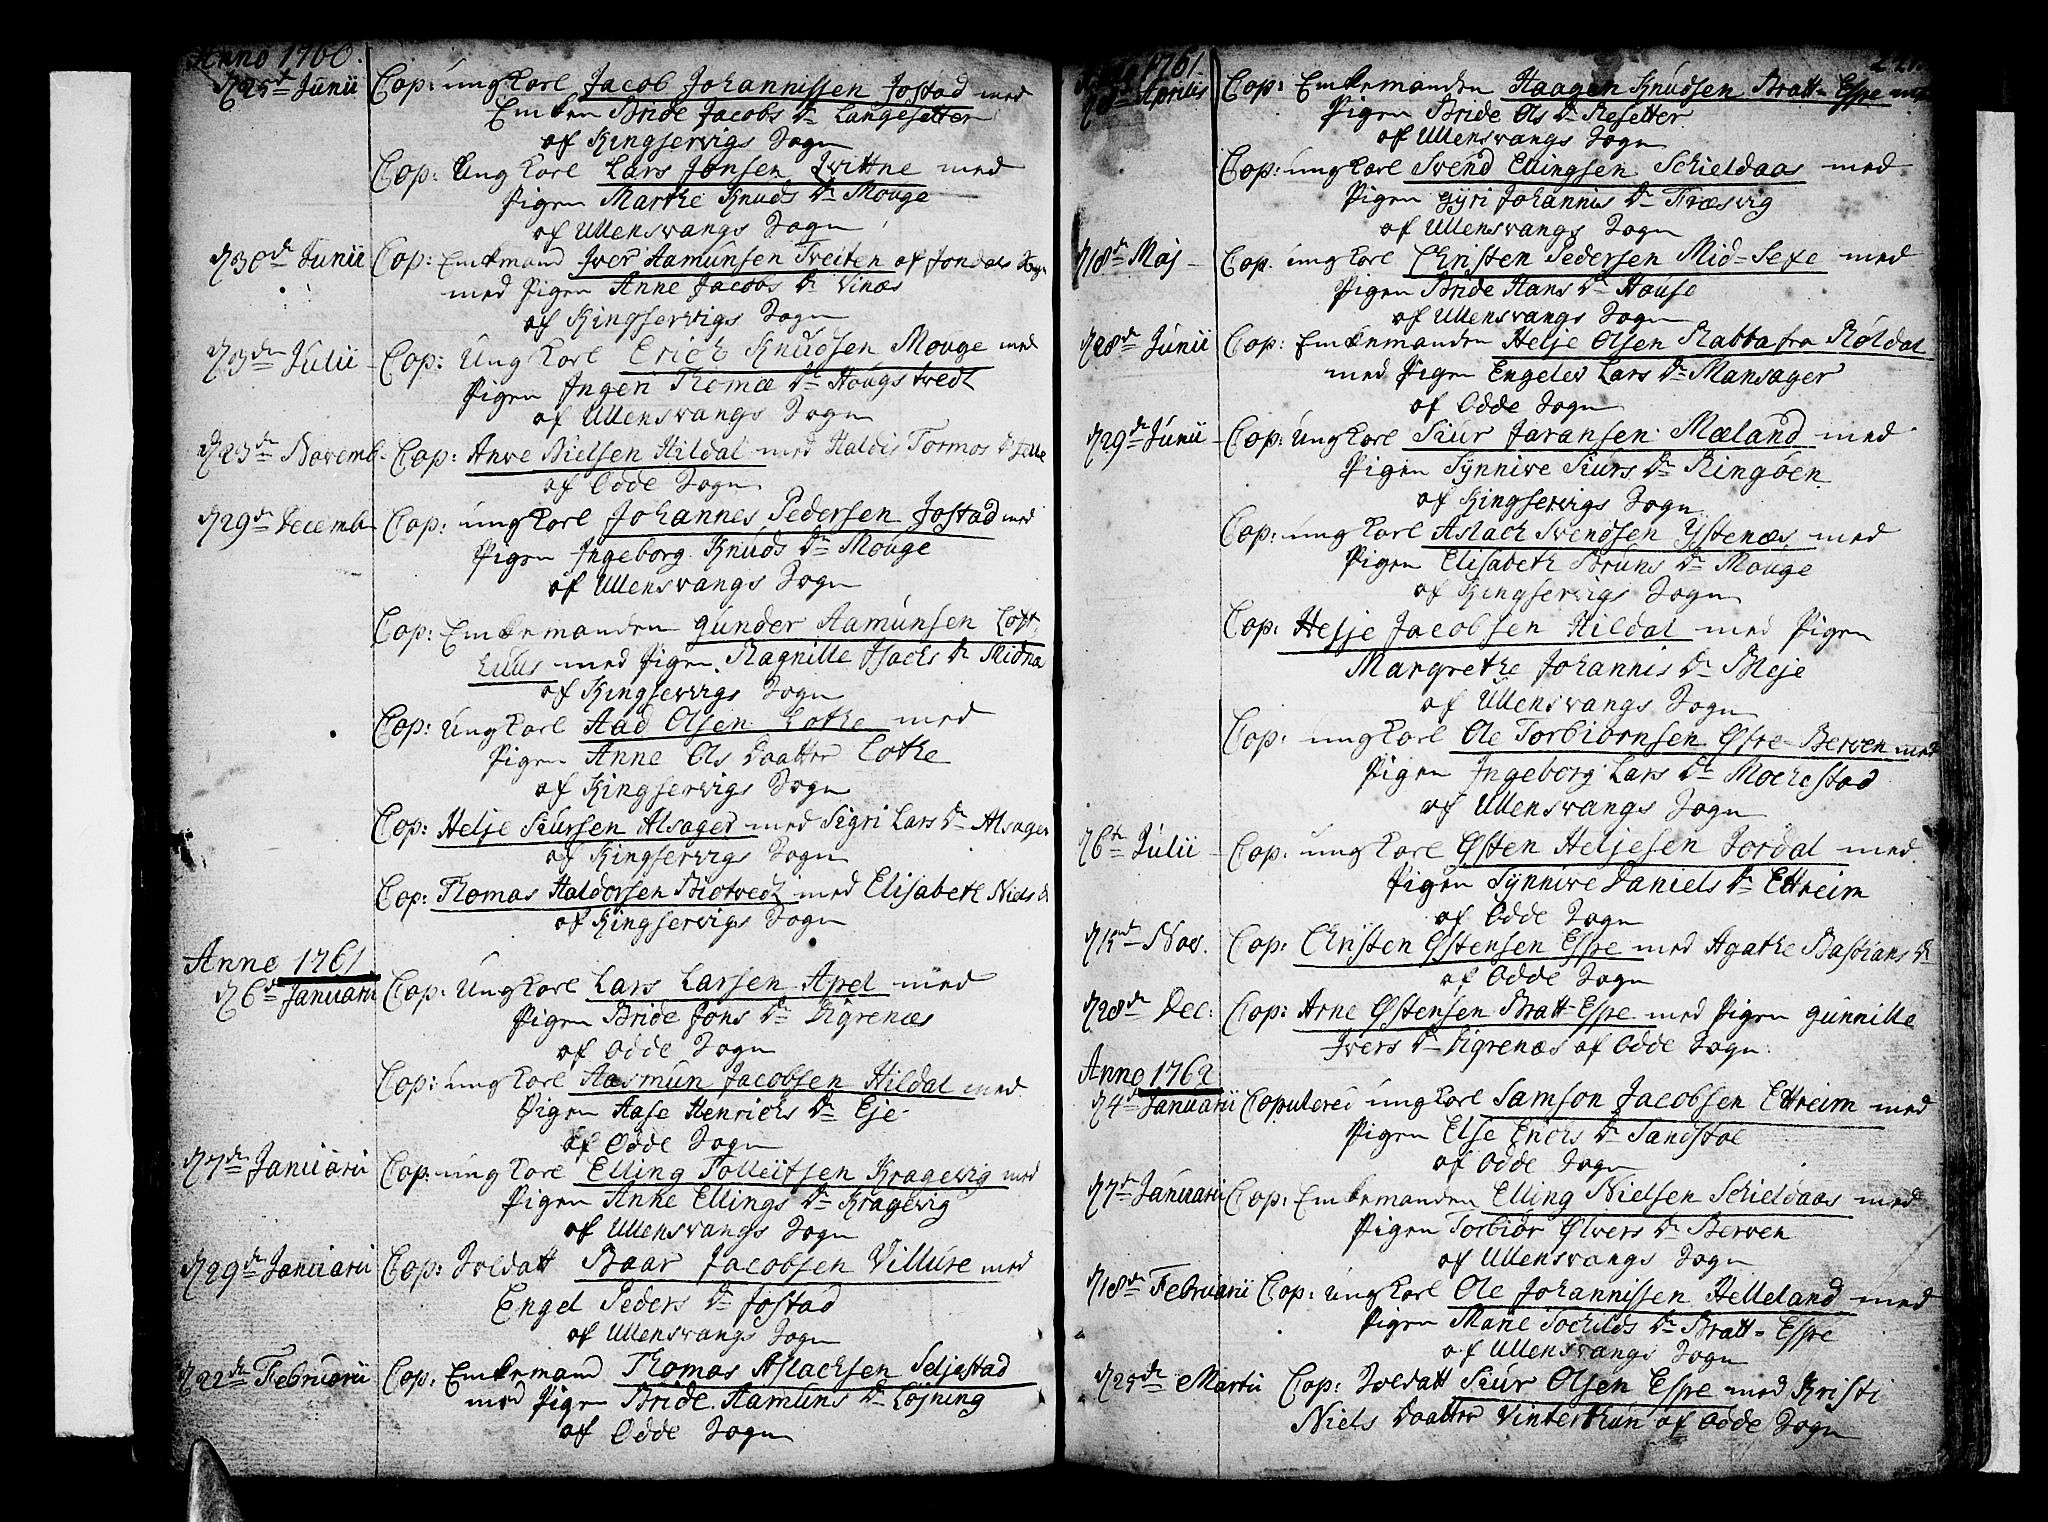 Anno 1760.
d 25de Junii Cop: ungkarl Jacob Johannissen Jostad med
Enken Bride Jacobs Dr Langesetter
af Kingservigs Sogn
Cop: Ungkarl Lars Jonsen Qvittne med
Pigen Marthe Knuds Dr Mouge
af Ullensvangs Sogn
d 30de Junii Cop: Enkemand Iver Aamunsen Tveiten af Jondals
med Pigen Anne Jacobs Dr Vinæs
af Kingservigs Sogn
d 3de Julii Cop: Ungkarl Erich Knudsen Mouge med
Pigen Ingeri Thomæ Dr Hougstvedt
af Ullensvangs Sogn
d 23de Novemb. Cop: Anve Nielsen Hildal med Haldis Tormos D
af Odde Sogn
d 29de Decemb Cop: ungkarl Johannes Pedersen Jostad med
Pigen Ingeborg Knuds Dr Mouge
af Ullensvangs Sogn
Cop: Enkemanden Gunder Aamunsen Loft
huus med Pigen Ragnille Isachs Dr Midna
af Kingservigs Sogn
Cop: Ungkarl Aad Olsen Lothe med
Pigen Anne Ols Daatter Lothe
af Kingservigs Sogn
Cop: Helje Siursen Alsager med Sigri Lars Dr Alsager
af Kingservigs Sogn
Cop: Thomas Haldorsen Biotvedt med Elisabeth Niels D
af Kingservigs Sogn
Anno 1761
d 6te Januarii Cop: Ungkarl Lars Larsen Apel med
Pigen Bride Jons Dr Digrenæs
af Odde Sogn
Cop: ungkarl Aasmun Jacobsen Hildal med
Pigen Aase Henrichs Dr Eje
af Odde Sogn
d 7de Januarii Cop: ungkarl Elling Tolleitsen Kragevig med
Pigen Anne Ellings Dr Kragevig
af Ullensvangs Sogn
d 29de Januarii Cop: Soldatt Baar Jacobsen Villure med
Engel Peders Dr Jostad
af Ullensvangs Sogn
d 22de Februarii Cop: Enkemand Thomas Aslachsen Seljestad
med Pigen Bride Aamuns Dr Løyning
af Odde Sogn
1761
Aprilis Cop: Enkemanden Haagen Knudsen Bratt-Espe med
Pigen Bride Ols Dr Resetter
af Ullensvangs Sogn
Cop: ungkarl Svend Ellingsen Schieldaas med
Pigen Gyri Johannis Dr Træsvig
af Ullensvangs Sogn
d 18de Maj Cop. ungkarl Christen Pedersen Mid-Sexe med
Pigen Bride Hans Dr House
af Ullensvangs Sogn
d 28de Junii Cop: Enkemanden Helje Olsen Rabba fra Røldal
med Pigen Engelev Lars Dr Mansager
af Odde Sogn
d 29de Junii Cop: Ungkarl Siur Jaransen Mæland med
Pigen Synnive Siurs Dr Ringøen
af Kingservigs Sogn
Cop: ungkarl Aslach Svendsen Ystenæs med
Pigen Elisabeth Bruns Dr Mouge
af Kingservigs Sogn
Cop: Helje Jacobsen Hildal med Pigen
Margrethe Johannis Dr Bleje
af Ullensvangs Sogn
Cop: ungkarl Ole Torbiørnsen Øfre-Berven med
Pigen Ingeborg Lars Dr Mochestad
af Ullensvangs Sogn
d 6te Julii Cop: ungkarl Østen Heljesen Jordal med
Pigen Synnive Daniels Dr Ettreim
af Odde Sogn
Nov. Cop: Christen Østensen Espe med Agathe Bastians Dr
af Odde Sogn
d 28de Dec: Cop: Arne Østensen Bratt-Espe med Pigen Gunnille
Ivers Dr Digrenæs af Odde Sogn.
Anno 1762
d 4de Januarii Copulered ungkarl Samson Jacobsen Ettreim med
Pigen Else Erichs Dr Sandstøe
af Odde Sogn
d 7de Januarii Cop: Enkemanden Elling Nielsen Schieldaas med
Pigen Torbiør Ølvers Dr Berven
af Ullensvangs Sogn
d 18de Februarii Cop: ungkarl Ole Johannissen Helleland med
Pigen Marie Tochilds Dr Bratt-Espe
af Ullensvangs Sogn
d 25de Martii Cop: Soldatt Siur Olsen Espe med Kristi
Niels Daatter Vinterthun af Odde Sogn